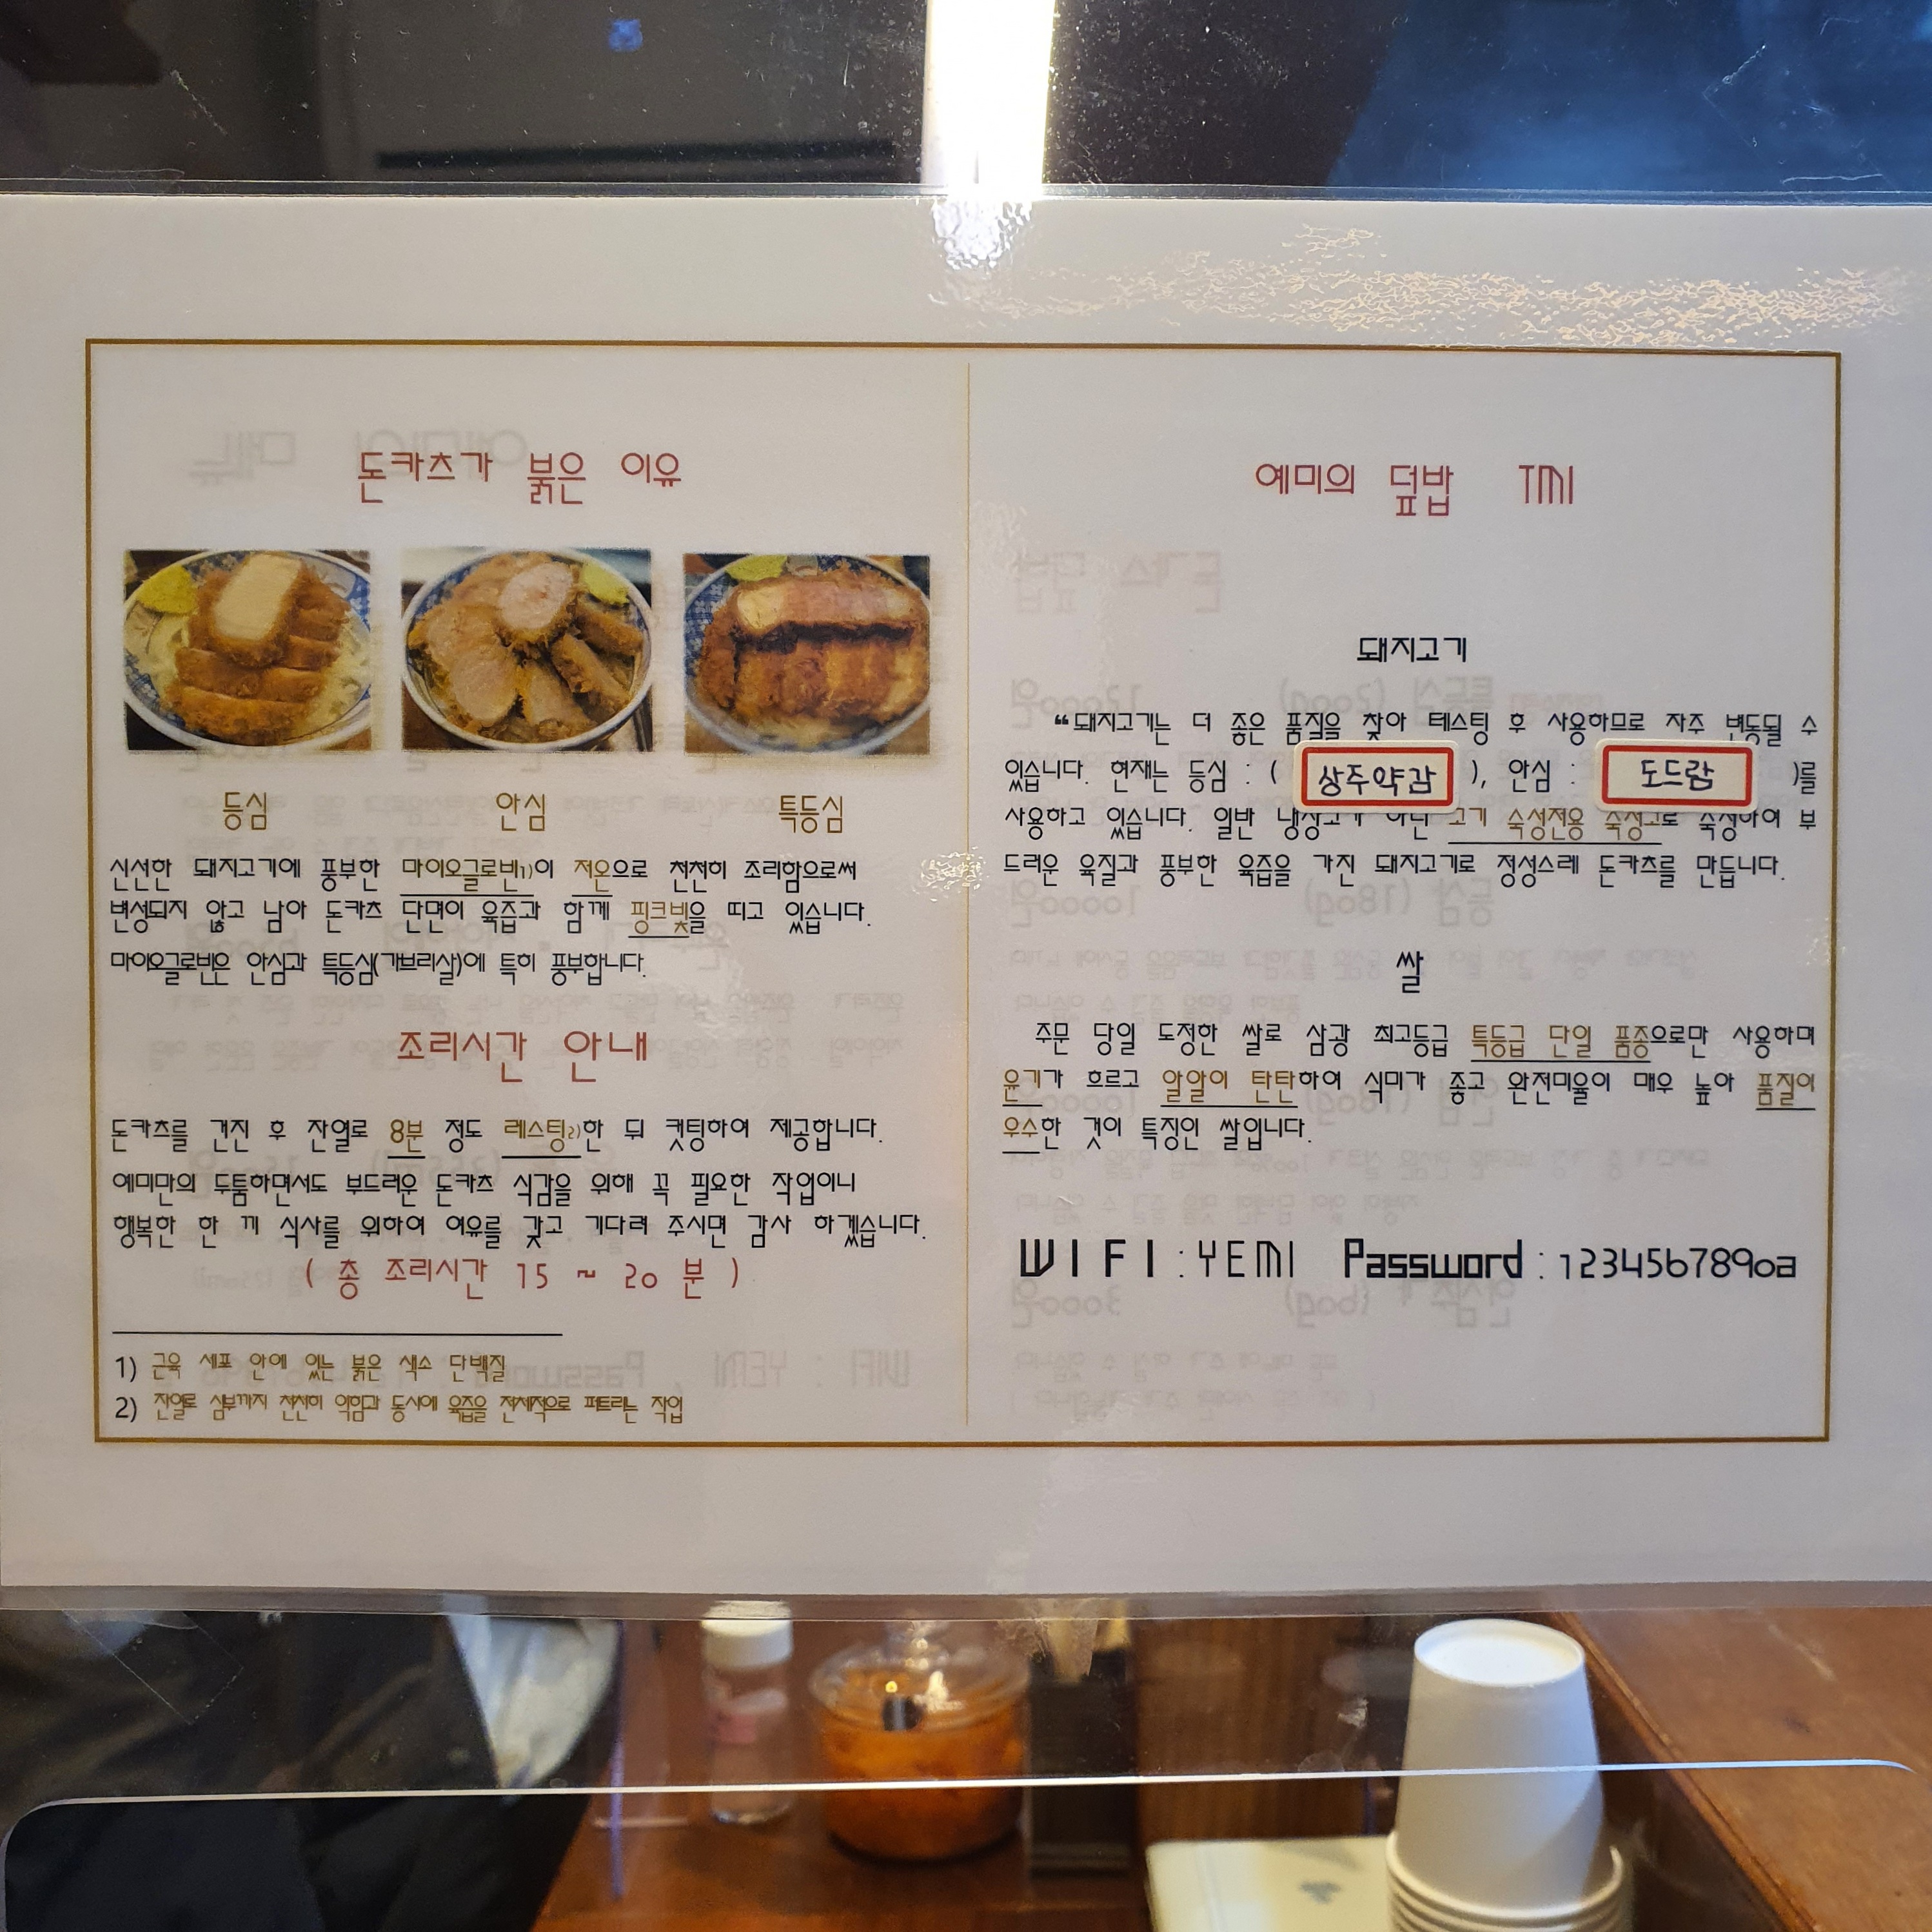 돈카츠가 붉은 이유
등심 안심 특등심
신선한 돼지고기에 풍부한 마이오글로빈1)이 저온으로 천천히 조리함으로써
변성되지 않고 남아 돈카츠 단면이 육즙과 함께 핑크빛을 띠고 있습니다.
마이오글로빈은 안심과 특등심(가브리살)에 특히 풍부합니다.
조리시간 안내
돈카츠를 건진 후 잔열로 8분 정도 레스팅2)한 뒤 컷팅하여 제공합니다.
예미만의 두툼하면서도 부드러운 돈카츠 식감을 위해 꼭 필요한 작업이니
행복한 한 끼 식사를 위하여 여유를 갖고 기다려 주시면 감사 하겠습니다.
( 총 조리시간 15 ~ 20 분 )
1) 근육 세포 안에 있는 붉은 색소 단백질
2) 잔열로 심부까지 천천히 익힘과 동시에 육즙을 전체적으로 퍼트리는 작업
예미의 덮밥 TMI
돼지고기
“돼지고기는 더 좋은 품질을 찾아 테스팅 후 사용하므로 자주 변동될 수
있습니다. 현재는 등심 : ( 상주약감 ), 안심 : 도드람 )를
사용하고 있습니다. 일반 냉장고가 아닌 고기 숙성전용 숙성고로 숙성하여 부
드러운 육질과 풍부한 육즙을 가진 돼지고기로 정성스레 돈카츠를 만듭니다.
쌀
주문 당일 도정한 쌀로 삼광 최고등급 특등급 단일 품종으로만 사용하며
윤기가 흐르고 알알이 탄탄하여 식미가 좋고 완전미율이 매우 높아 품질이
우수한 것이 특징인 쌀입니다.
WIFI : YEMI Password : 1234567890a